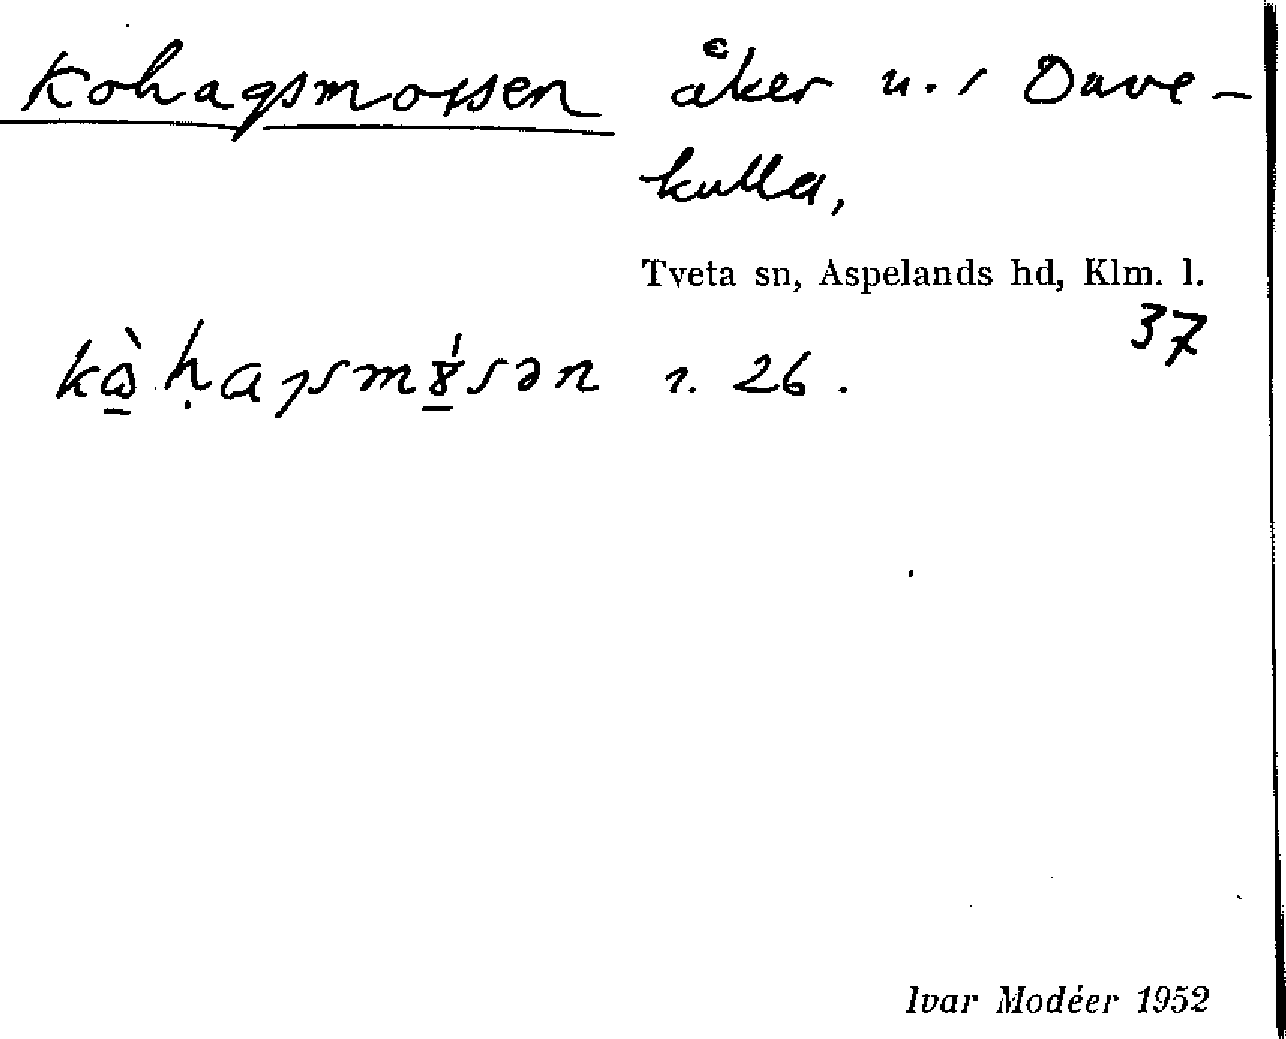 Kohagsmossen åker u. / Dave-
kulla,
Tveta sn, Aspelands hd, Klm. l.
37
26.
Ivar Modéer 1952